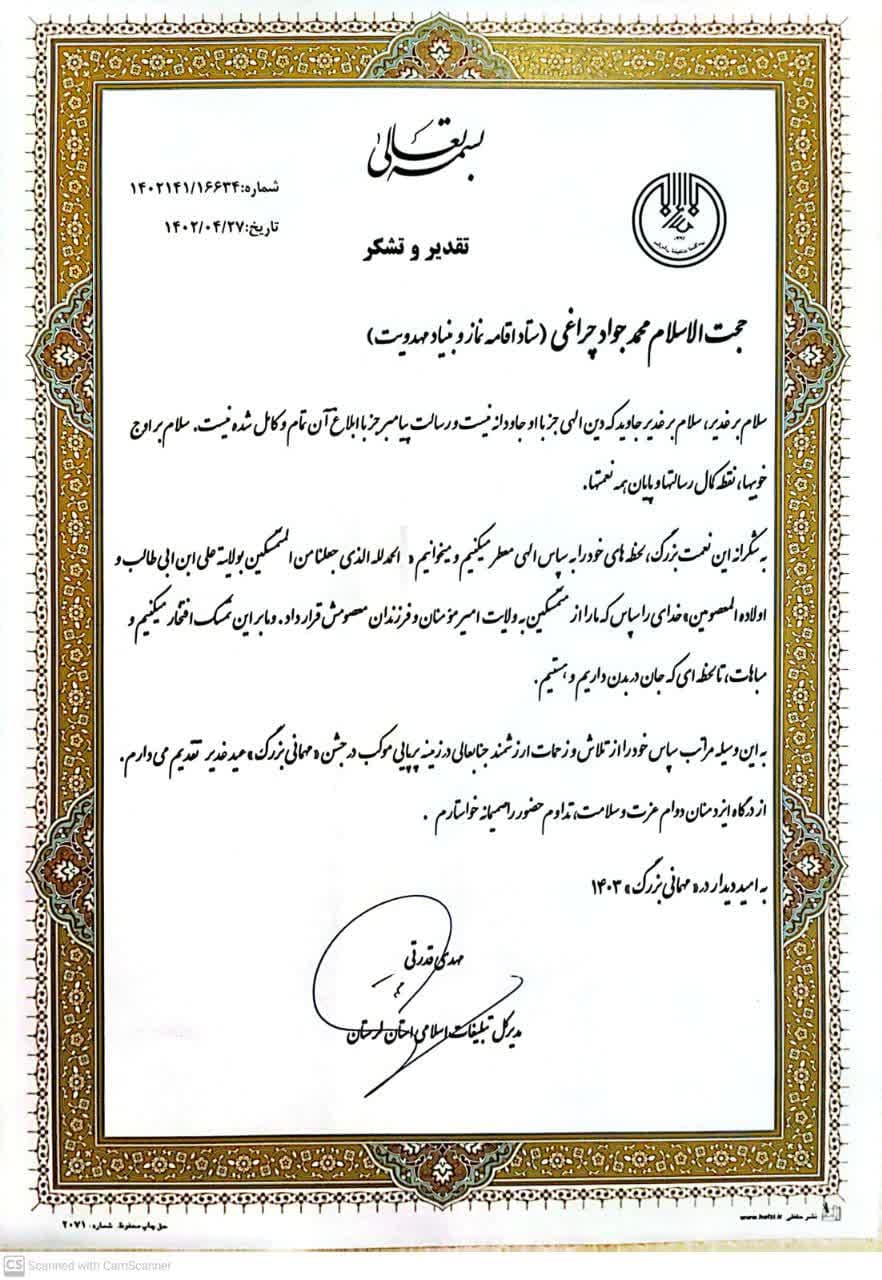 بسمه تعالی
شماره:۱۴۰۲۱۴۱/۱۶۶۳۴
تاریخ:۱۴۰۲/۰۴/۲۷
تقدیر و تشکر
حجت الاسلام محمد جواد چراغی (ستاد اقامه نماز و بنیاد مهدویت)
سلام بر غدیر، سلام بر غدیر جاوید که دین الهی جز با او جاودانه نیست و رسالت پیامبر جز با ابلاغ آن تمام و کامل شده نیست. سلام بر اوج
خوبیها، نقطه کمال رسالتها و پایان همه نعمتها.
به شکرانه این نعمت بزرگ، لحظه های خود را به سپاس الهی معطر میکنیم و میخوانیم « الحمدلله الذی جعلنا من المتمسکین بولایة علی ابن ابی طالب و
اولاده المعصومین» خدای را سپاس که ما را از متمسکین به ولایت امیر مؤمنان و فرزندان معصومش قرار داد. و ما بر این تمسک افتخار میکنیم و
مباهات، تا لحظه ای که جان در بدن داریم و هستیم.
به این وسیله مراتب سپاس خود را از تلاش و زحمات ارزشمند جنابعالی در زمینه برپایی موکب در جشن «مهمانی بزرگ» عید غدیر تقدیم می دارم.
از درگاه ایزد منان دوام عزت و سلامت، تداوم حضور را صمیمانه خواستارم .
به امید دیدار در «مهمانی بزرگ» ۱۴۰۳
مهدی قدرتی
مدیرکل تبلیغات اسلامی استان لرستان
نشر حفظی www.hefzi.ir
حق چاپ محفوظ. شماره: ۲۰۷۱
CS Scanned with CamScanner